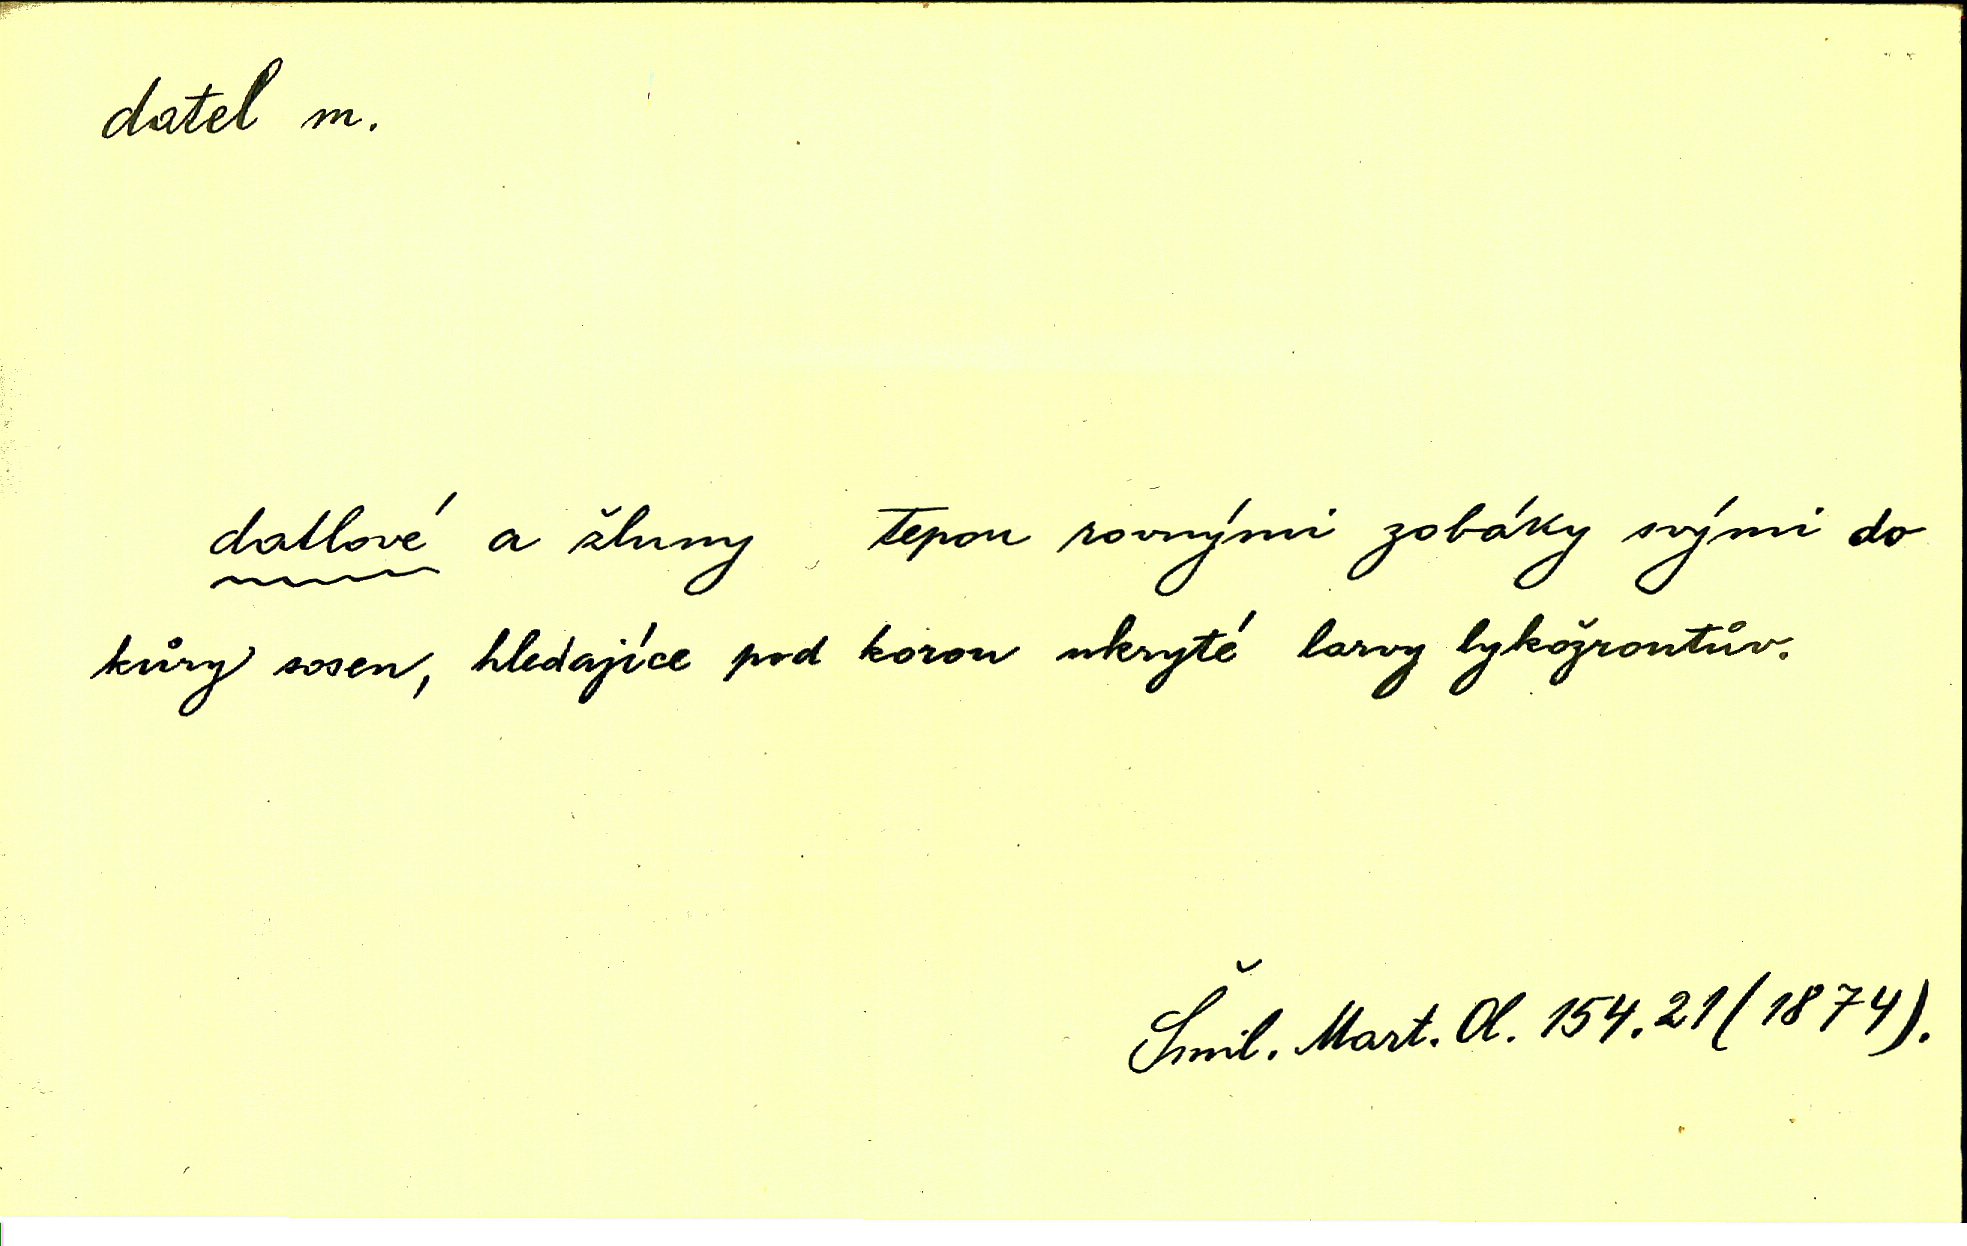 datel m.
datlové a žluny tepou rovnými zobáky svými do
kůry sosen, hledajíce pod korou ukryté larvy lykožroutův.
Šmil. Mart. Ol. 154.21 (1874).